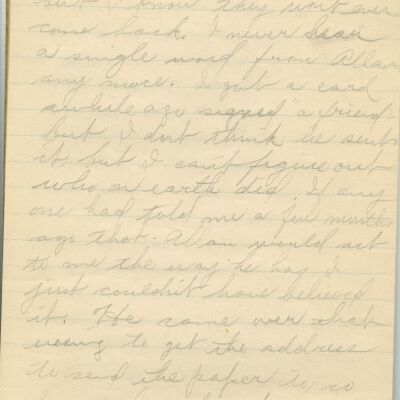 but I know they won't ever
come back. I never hear
a single word from Allan
any more. I got a card
awhile ago signed "a friend"
but I don't think he sent
it, but I can't figure out
who on earth did. If any
one had told me a few months
ago that Allan would act
to me the way he has, I
just couldn't have believed
it. He came over that
evening to get the address
to send the paper to so